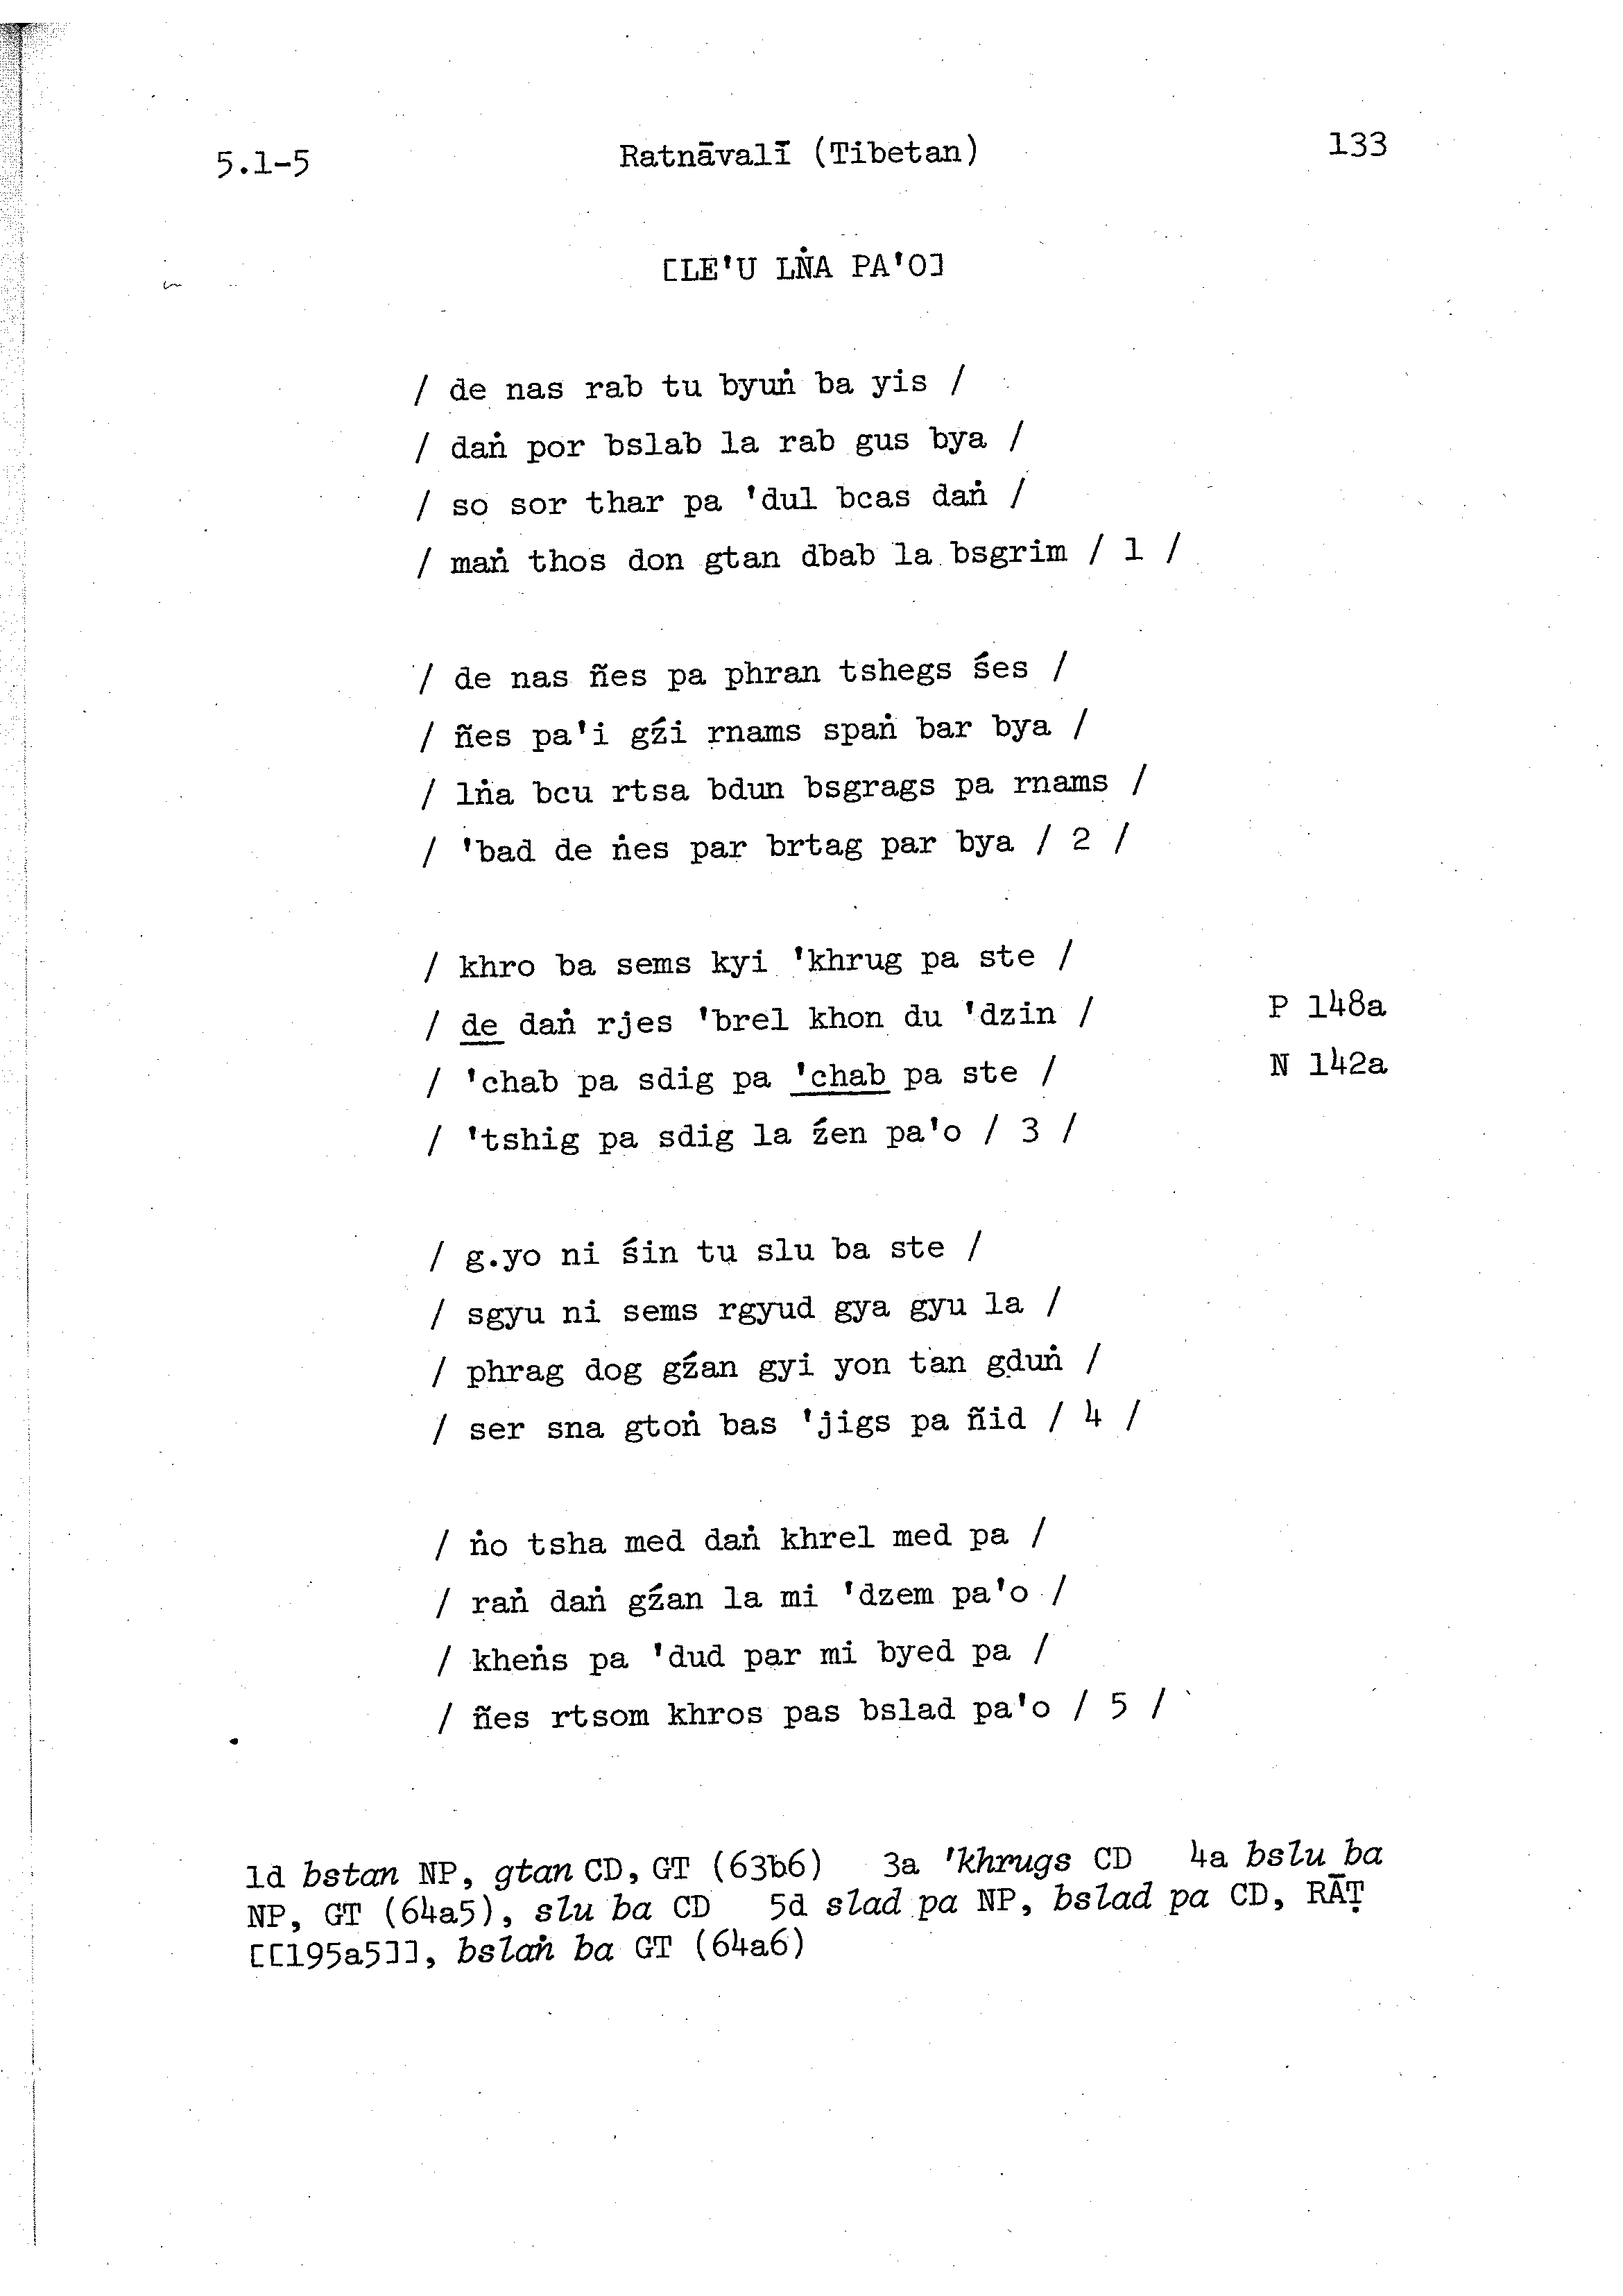 5.1-5 Ratnāvalī (Tibetan) 133
[LE'U LṄA PA'O]
/ de nas rab tu byuṅ ba yis /
/ daṅ por bslab la rab gus bya /
/ so sor thar pa 'dul bcas daṅ /
/ maṅ thos don gtan dbab la bsgrim / 1 /
/ de nas ñes pa phran tshegs śes /
/ ñes pa'i gźi rnams spaṅ bar bya /
/ lṅa bcu rtsa bdun bsgrags pa rnams /
/ 'bad de ṅes par brtag par bya / 2 /
/ khro ba sems kyi 'khrug pa ste /
/ de daṅ rjes 'brel khon du 'dzin / P 148a
/ 'chab pa sdig pa 'chab pa ste / N 142a
/ 'tshig pa sdig la źen pa'o / 3 /
/ g.yo ni śin tu slu ba ste /
/ sgyu ni sems rgyud gya gyu la /
/ phrag dog gźan gyi yon tan gduṅ /
/ ser sna gtoṅ bas 'jigs pa ñid / 4 /
/ ṅo tsha med daṅ khrel med pa /
/ raṅ daṅ gźan la mi 'dzem pa'o /
/ kheṅs pa 'dud par mi byed pa /
/ ñes rtsom khros pas bslad pa'o / 5 /
1d bstan NP, gtan CD, GT (63b6) 3a 'khrugs CD 4a bslu ba
NP, GT (64a5), slu ba CD 5d slad pa NP, bslad pa CD, RĀṬ
[[195a5]], bslaṅ ba GT (64a6)